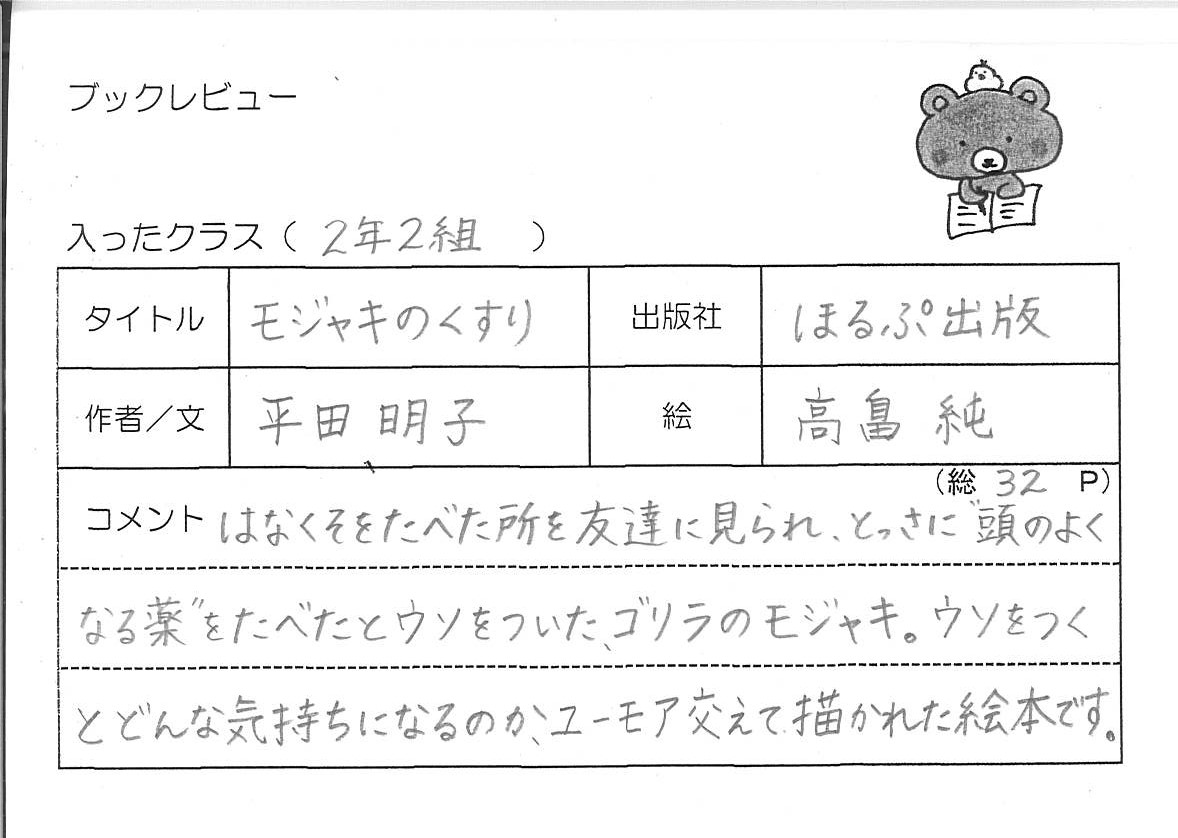 ブックレビュー
入ったクラス（ 2年2組 ）
タイトル モジャキのくすり 出版社 ほるぷ出版
作者／文 平田 明子 絵 高畠 純
（総 32 P）
コメント はなくそをたべた所を友達に見られ、とっさに"頭のよく
なる薬"をたべたとウソをついた、ゴリラのモジャキ。ウソをつく
とどんな気持ちになるのか、ユーモア交えて描かれた絵本です。